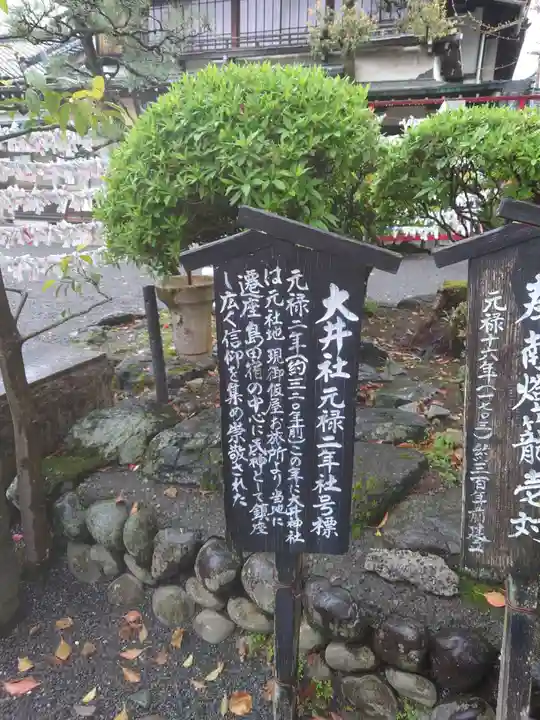 大井社元禄二年社号標
元禄二年(約三二〇年前)この年に大井神社
は元社地 現御仮屋お旅所より当地に
遷座 島田宿の中心に氏神として鎮座
し広く信仰を集め崇敬された
寿南燈籠老対
元禄十六年(一七〇三)
三百年前